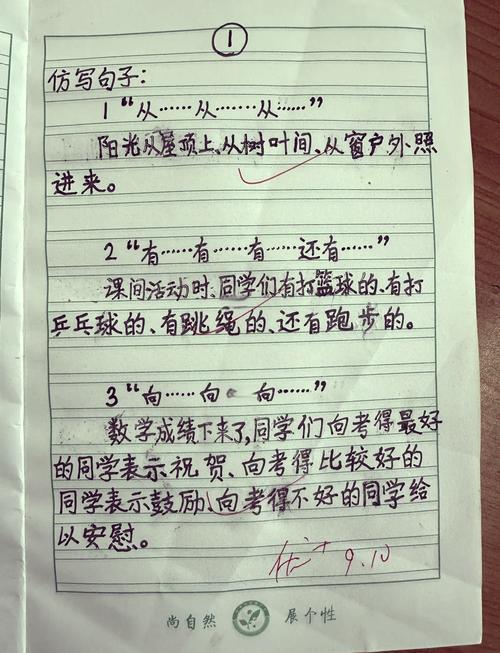 1
仿写句子：
1“从……从……从……”
阳光从屋顶上、从树叶间、从窗户外照
进来。
2“有……有……有……还有……”
课间活动时、同学们有打篮球的、有打
乒乓球的、有跳绳的、还有跑步的。
3“向……向 向……”
数学成绩下来了,同学们向考得最好
的同学表示祝贺、向考得比较好的
同学表示鼓励、向考得不好的同学给
以安慰。
优+ 9.10
尚自然 展个性